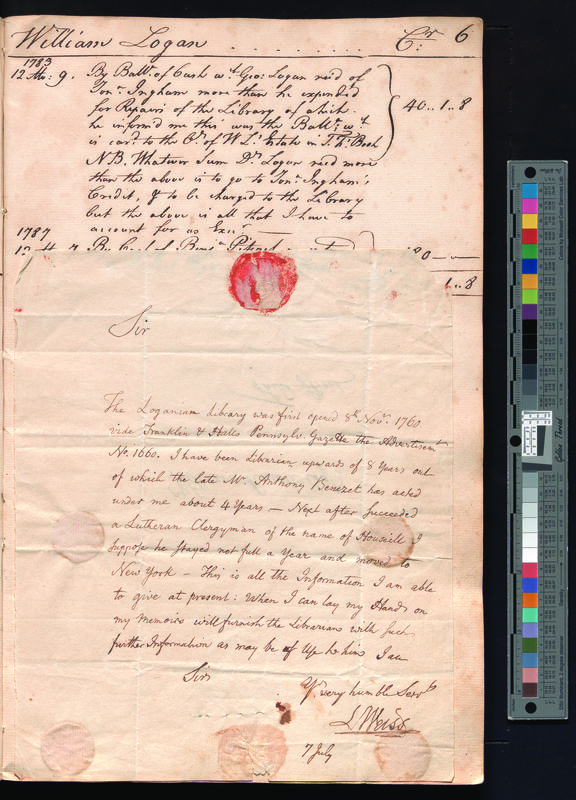 William Logan . . . . . . . . . . Cr: 6
1783
12 Mo: 9. By Ballce. of Cash wt. Geo: Logan recd of
Jona. Ingham more than he expended
for Repairs of the Library of which
he inform'd me this was the Ballce. wt. 40..1..8
is card. to the Ct. of W L's Estate in Book
NB. Whatever Sum Dr. Logan recd more
than the above is to go to Jona. Ingham's
Credit, & to be charged to the Library
but the above is all that I have to
account for as Execr.
1787
By
1..8
Sir
The Loganian Library was first opened 8th. Novr. 1760
vide Franklin & Halls Pennsylv. Gazette the Advertisemt
No. 1660. I have been Librarian upwards of 8 Years out
of which the late Mr. Anthony Benezet has acted
under me about 4 Years — Next after succeeded
a Lutheran Clergyman of the name of Housiell I
suppose he stayed not full a Year and moved to
New York — This is all the Information I am able
to give at present: When I can lay my Hands on
my Memoirs will furnish the Librarians with such
further Information as may be of Use to him I am
Sir
Yr. very humble Servt
L Weiss
7 July